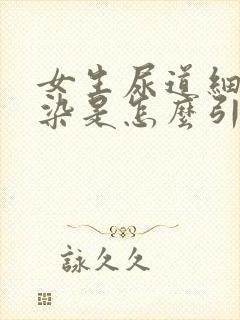 女生尿道細
染是怎麼引
詠久久